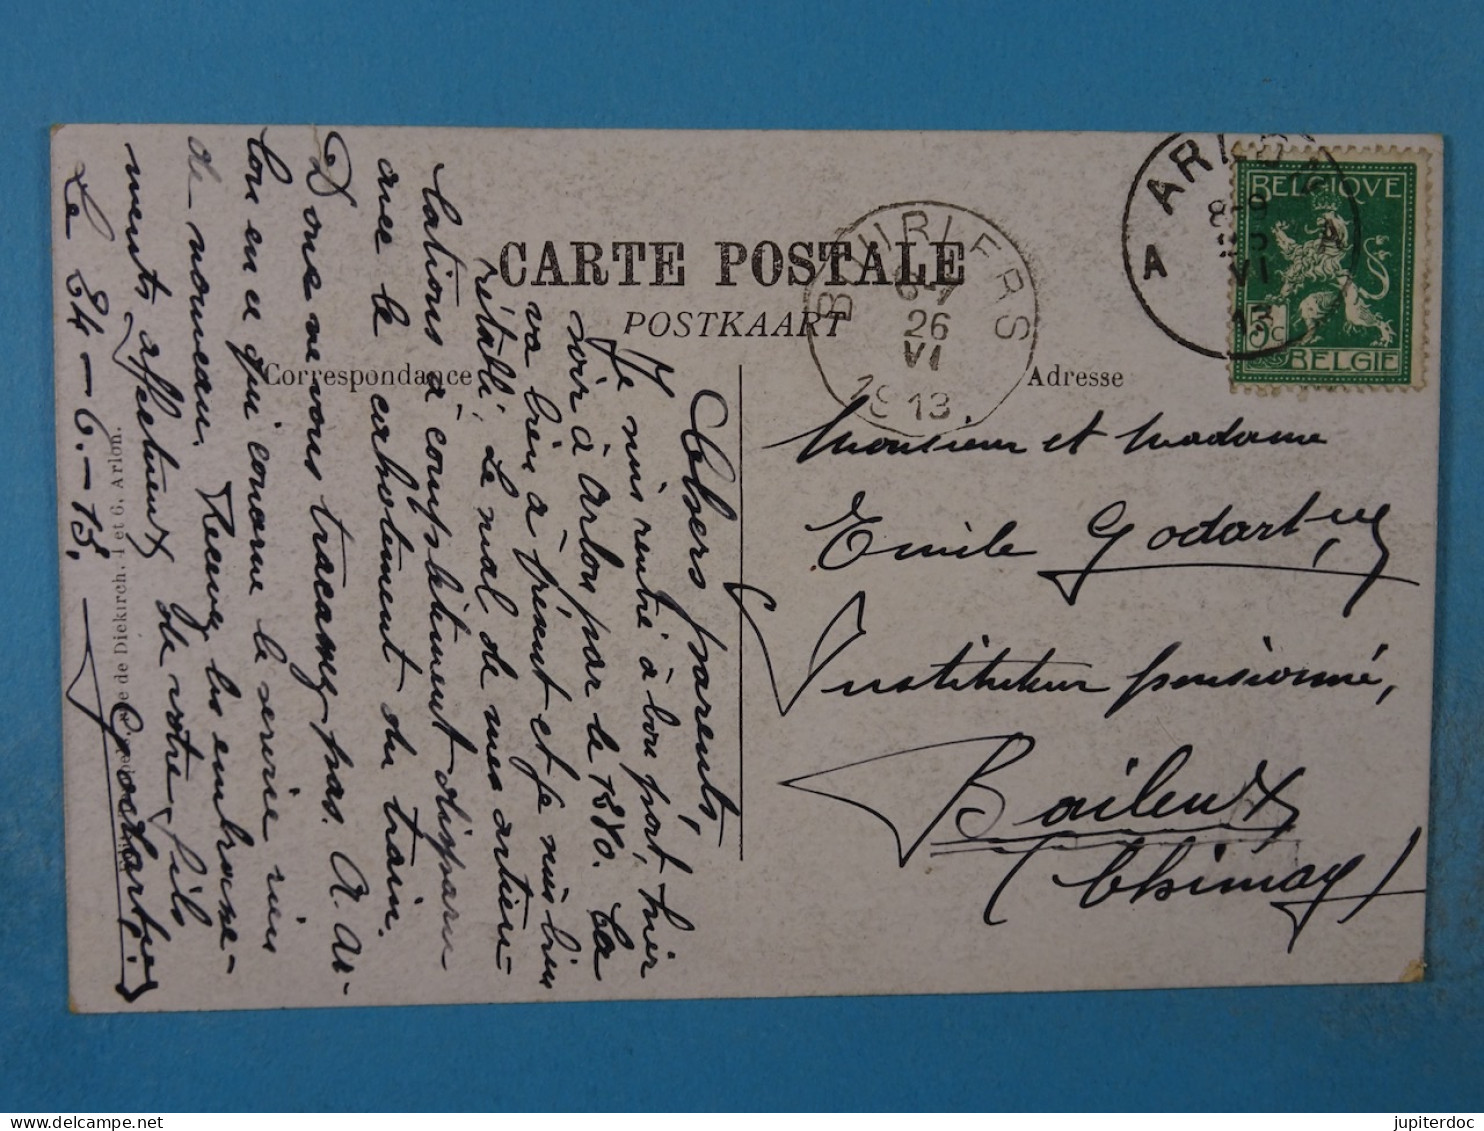 CARTE POSTALE
POSTKAART
Correspondance
Adresse
BOURLERS
6-7
26
VI
1913
ARLON
A A
8-9
25
VI
13
BELGIQUE
5c
BELGIE
Chers parents,
Je suis rentré à bon port, hier
soir à Arlon par le 1880. Ça
va bien à présent et je suis bien
rétabli, le mal de mes artieu-
lations à complètement disparu
avec le cahotement du train.
Donc ne vous tracassez pas. A Ar-
lon en ce qui concerne le service rien
de nouveau. Recevez les embrasse-
ments affectueux de votre fils
Le 24-6.-13.
Godart
Monsieur et Madame
Emile Godart
Instituteur pensionné,
Baileux
(Chimay)
de Diekirch, 4 et 6, Arlon.
jupiterdoc